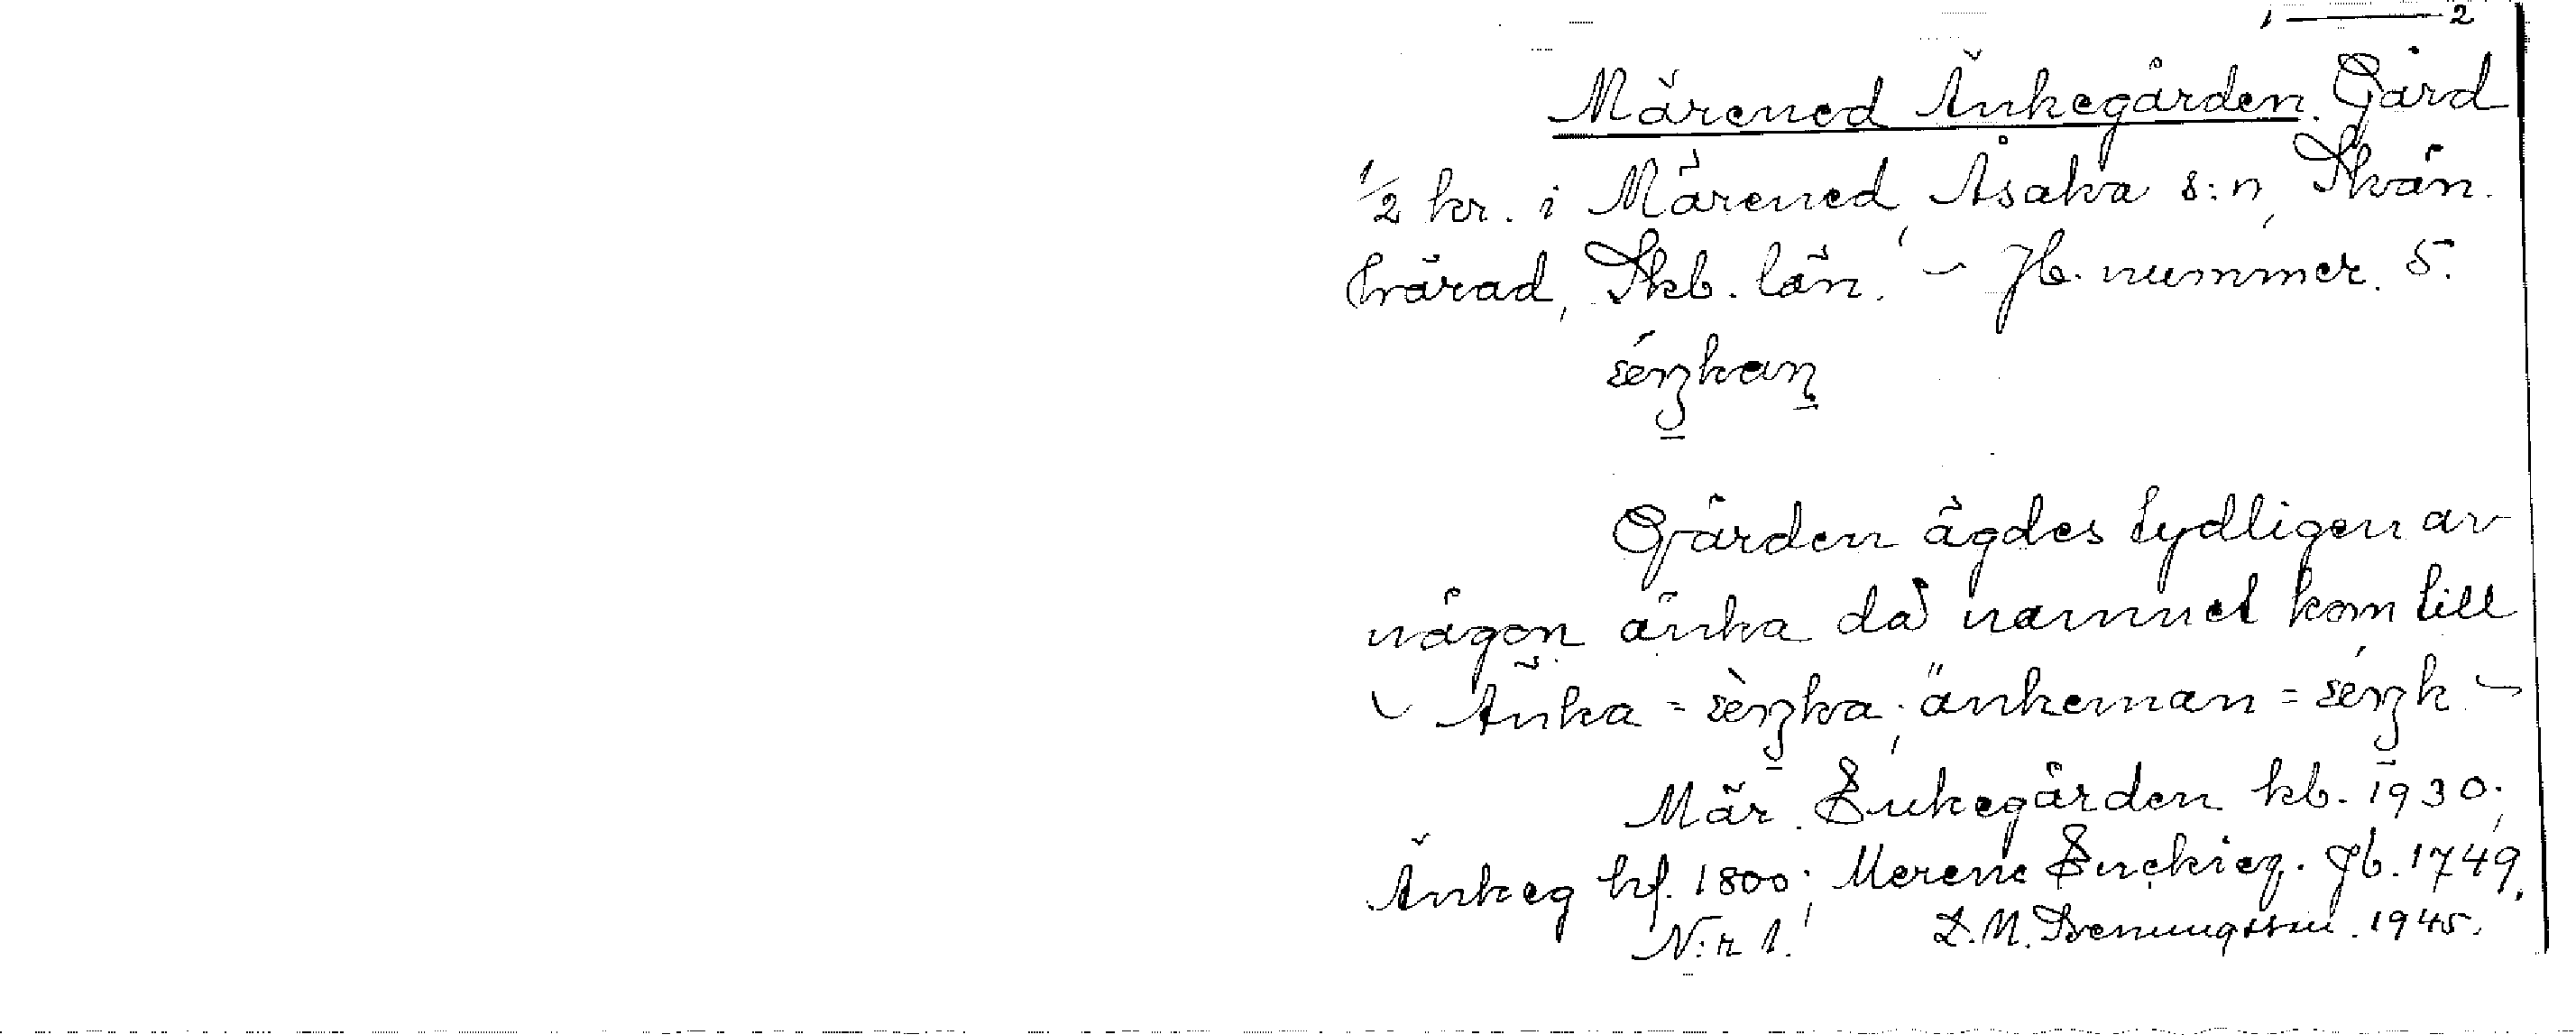 1 — 2
Märened Änkegården. Gård
1/2 kr. i Märened, Åsaka s:n, Skån.
härad, Skb. län. – Jb. nummer. 5.
Gården ägdes tydligen av
någon änka då namnet kom till
Änka = änkeman =
Mär. Enkegården kb. 1930;
Änkeg hf. 1800; Merene Enckieg. Jb. 1749.
N:r 1. D.M. Svenungsson. 1945.